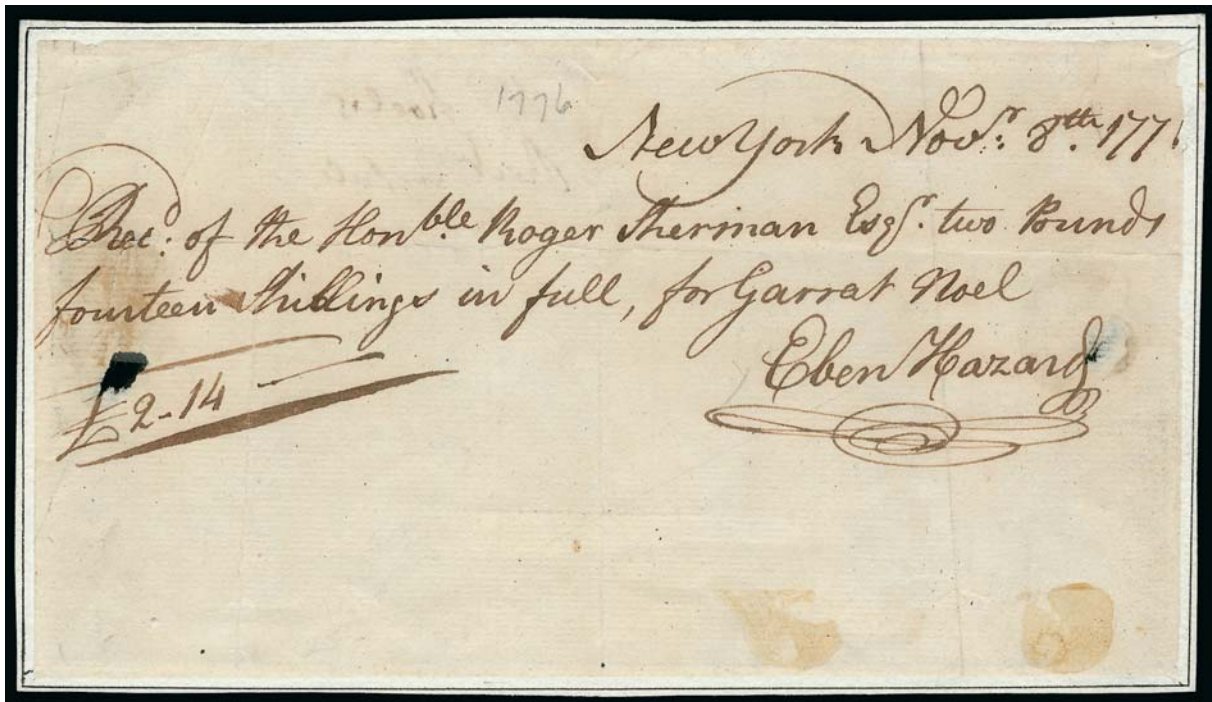 1776
New York Nov.r 8th. 177
Rec.d of the Hon.ble Roger Sherman Esqr. two Pounds
fourteen Shillings in full, for Garrat Noel
Eben Hazard
£2-14